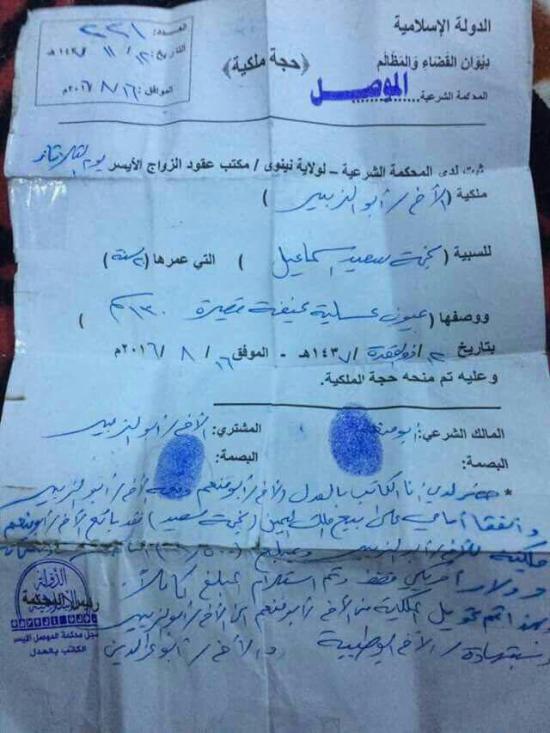 الدولة الإسلامية
ديوان القضاء والمظالم
المحكمة الشرعية الموصل
﴿حجة ملكية﴾
العدد: ٢٢١
التاريخ: / ١١ / ١٤٣هـ
الموافق: ١٦ / ٨ / ٢٠١٦م
ثبت لدى المحكمة الشرعية - لولاية نينوى / مكتب عقود الزواج الأيسر يوم
ملكية (الأخ / أبو الزبير )
للسبية (نجمة سعيد اسماعيل ) التي عمرها (٢٠ سنة)
ووصفها (عيون عسلية نحيفة قصيرة ١٣٠سم )
بتاريخ / ذو القعدة / ١٤٣٧هـ - الموافق ١٦ / ٨ / ٢٠١٦م
وعليه تم منحه حجة الملكية.
المالك الشرعي: أبو منعم
المشتري: الأخ / أبو الزبير
البصمة:
البصمة:
* حضر لدي أنا الكاتب بالعدل الأخ / أبو منعم ومعه أخ / أبو الزبير
واتفقا أمامي على بيع ملك اليمين (نجمة سعيد) فقد بائع الأخ / أبو منعم
ملكيته للأخ / أبو الزبير وبمبلغ
دولار أمريكي فقط وتم استلام المبلغ كاملاً
وبهذا تم تحويل الملكية من الأخ / أبو منعم الى الأخ / أبو الزبير
وبشهادة / الأخ والأخ / أبو عز الدين
الدولة الإسلامية
رئيس المحكمة
سجل محكمة الموصل الأيسر
الكاتب بالعدل